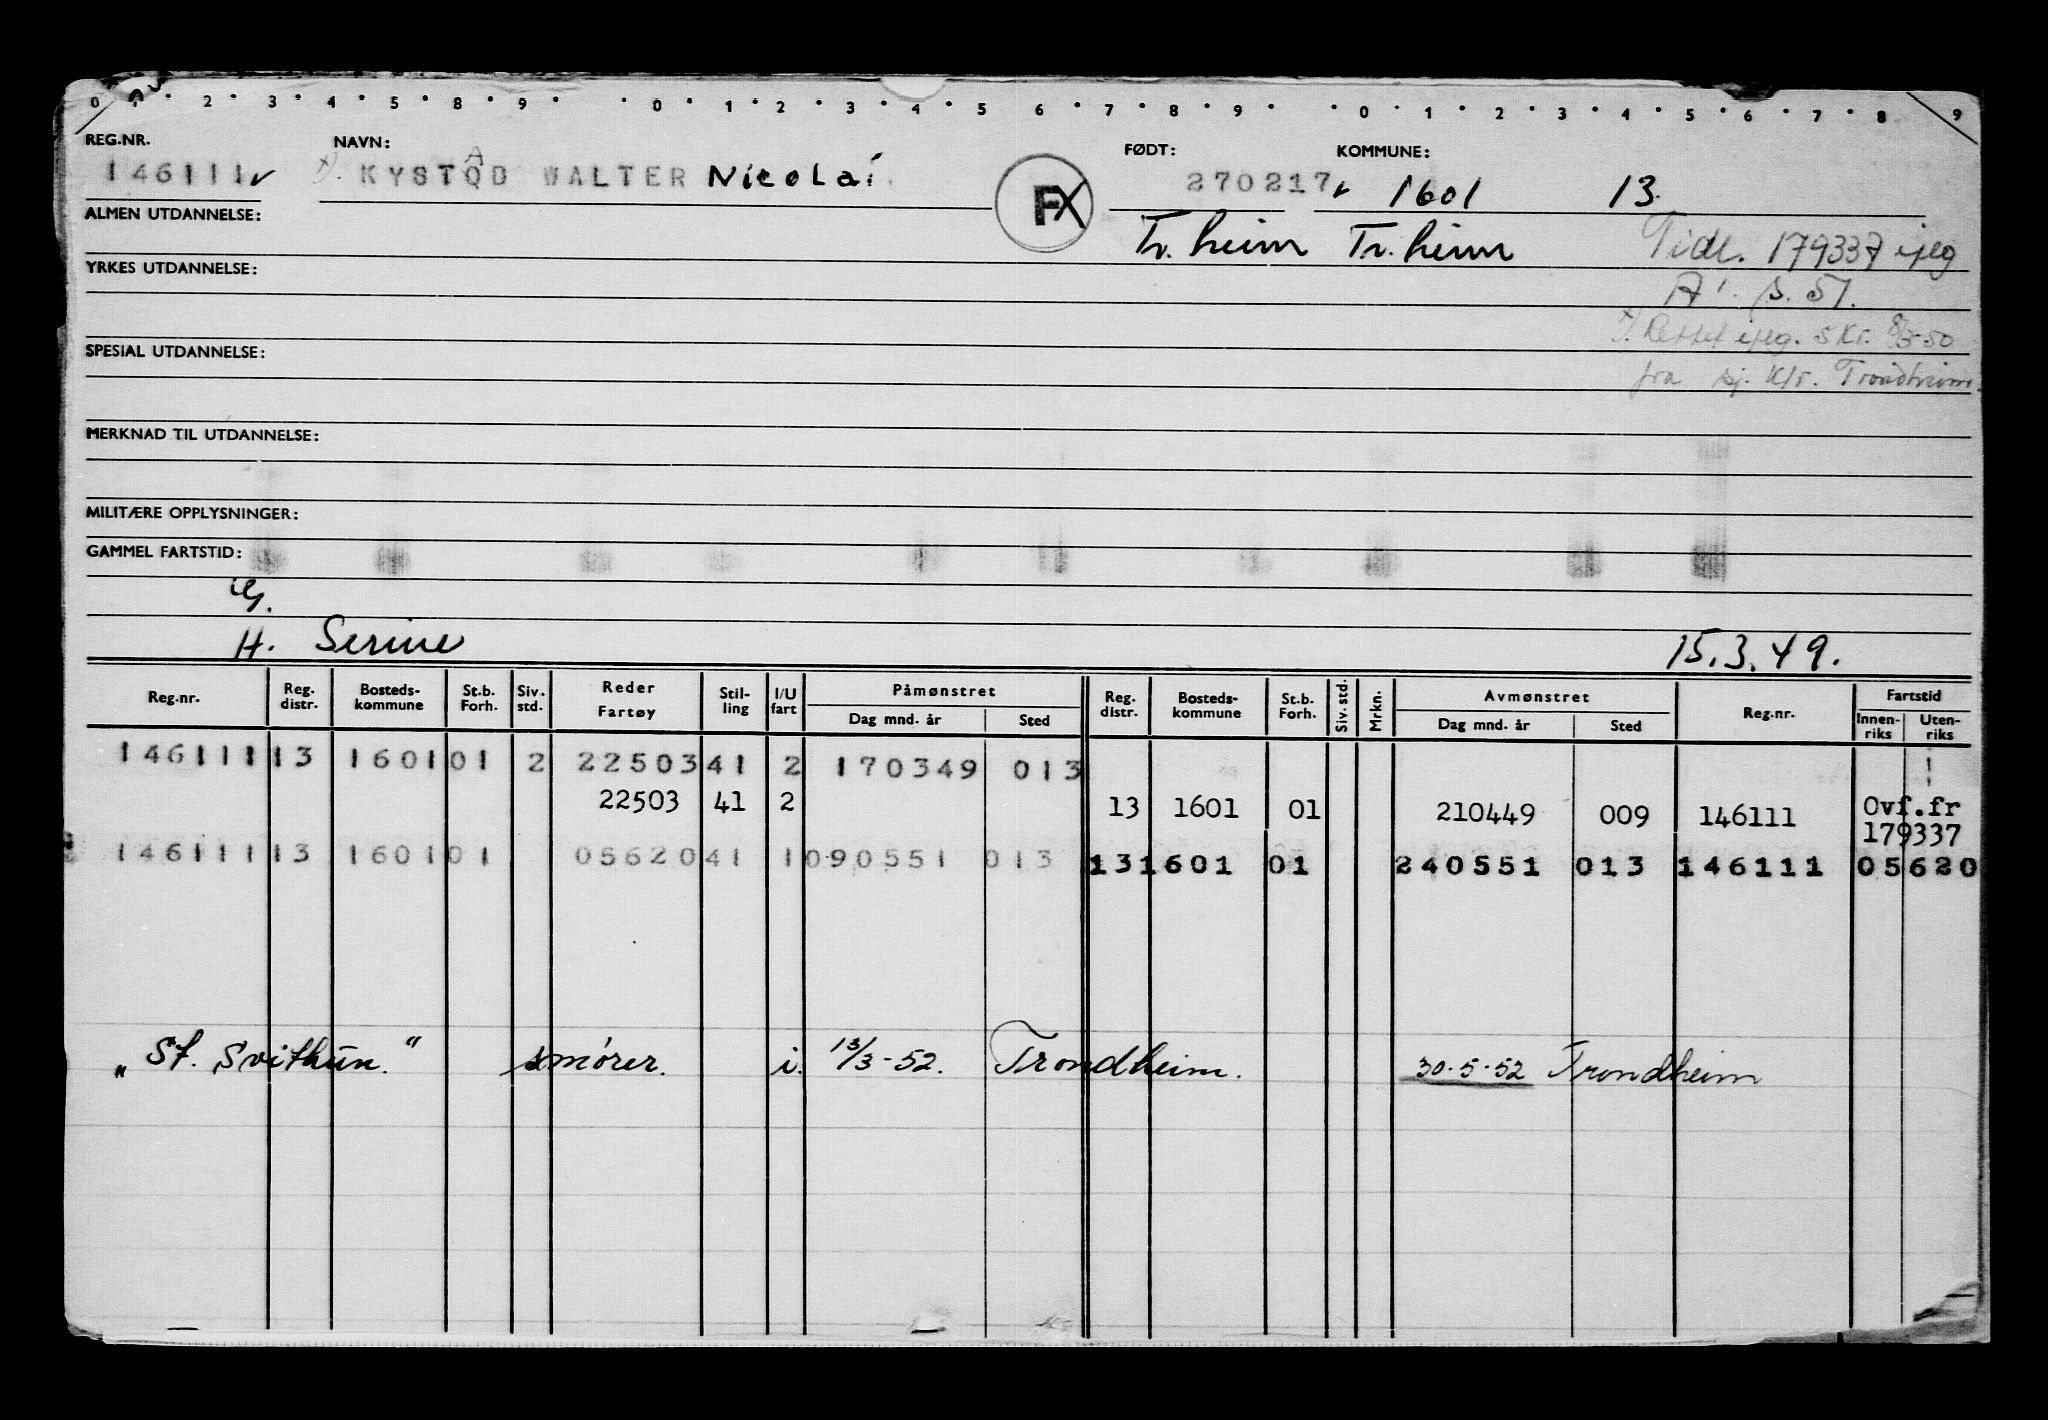 0 1 2 3 4 5 8 9 0 1 2 3 4 5 6 7 8 9 0 1 2 3 4 5 6 7 8 9
REG.NR. NAVN: FØDT: KOMMUNE:
146111 KYSTAD WALTER Nicolai FX 270217 1601 13.
ALMEN UTDANNELSE: Tr. heim Tr. heim Tidl. 179337
YRKES UTDANNELSE:
s. 51.
SPESIAL UTDANNELSE: Rettet skr. 8/3-50
fra Trondheim
MERKNAD TIL UTDANNELSE:
MILITÆRE OPPLYSNINGER:
GAMMEL FARTSTID:
G.
H. Serine 15.3.49.
Reg.nr. Reg. distr. Bosteds-kommune St.b. Forh. Siv. std. Reder Fartøy Stil-ling I/U fart Påmønstret Dag mnd. år Sted Reg. distr. Bosteds-kommune St.b. Forh. Siv. std. Mrkn. Avmønstret Dag mnd. år Sted Reg.nr. Fartstid Innen-riks Uten-riks
146111 13 1601 01 2 22503 41 2 170349 013
22503 41 2 13 1601 01 210449 009 146111 Ovf.fr
179337
146111 13 1601 01 05620 41 1 090551 013 13 1601 01 240551 013 146111 05620
„St. Svithun.“ smører. i. 13/3-52. Trondheim. 30-5-52 Trondheim